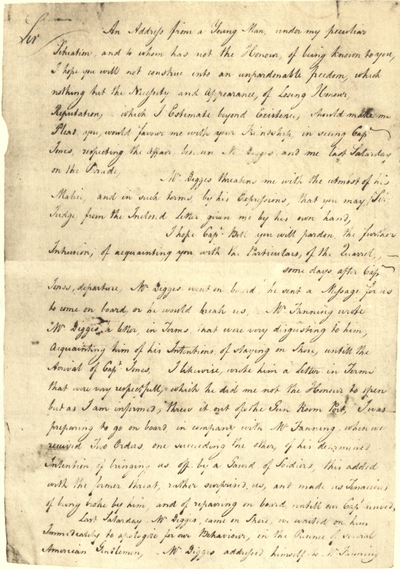 Sir
An Address from a Young Man, under my peculiar
Situation, and to whom has not the Honour, of being known to you,
I hope you will not construe into an unpardonable freedom, which
nothing but the Necessity and Appearance, of Losing Honour,
Reputation, which I Estimate beyond Existence, should make me
Plead, you would favour me with your Friendship, in seeing Capt
Jones, respecting the affair between Mr Digges, and me last Saturday
on the Parade,
Mr Digges threatens me with the utmost of his
Malice, and in such terms, by his Expressions, that you may, Sir
Judge from the Inclosed Letter given me by his own hand,
I hope Capt you will pardon the further
Intrusion, of acquainting you with the Particulars, of the Quarrel,
some days after Capt
Jones, departure, Mr Digges went on board he sent a Message for us
to come on board or he would break us, Mr Fanning wrote
Mr Digges, a letter, in Terms, that were very disgusting to him,
Acquainting him of his Intentions of staying on Shore, untill the
Arrival of Capt Jones, I likewise, wrote him a Letter in Terms
that were very respectfull, which he did me not the Honour to open
but as I am informed, threw it out of the Gun Room Port, I was
preparing to go on board in company with Mr Fanning, when we
received Two Orders one succeeding the other, of his determined
Intention of bringing us off by a Guard of Soldiers, this added
with the former threat, rather surprised, us, and made us Tenacious
of being broke by him and of repairing on board, untill our Capt arrived,
Last Saturday Mr Digges, came on Shore, we waited on him
Immediately to apologize for our Behaviour, in the Presence of several
American Gentlemen, Mr Digges addressed himself to Mr Fanning